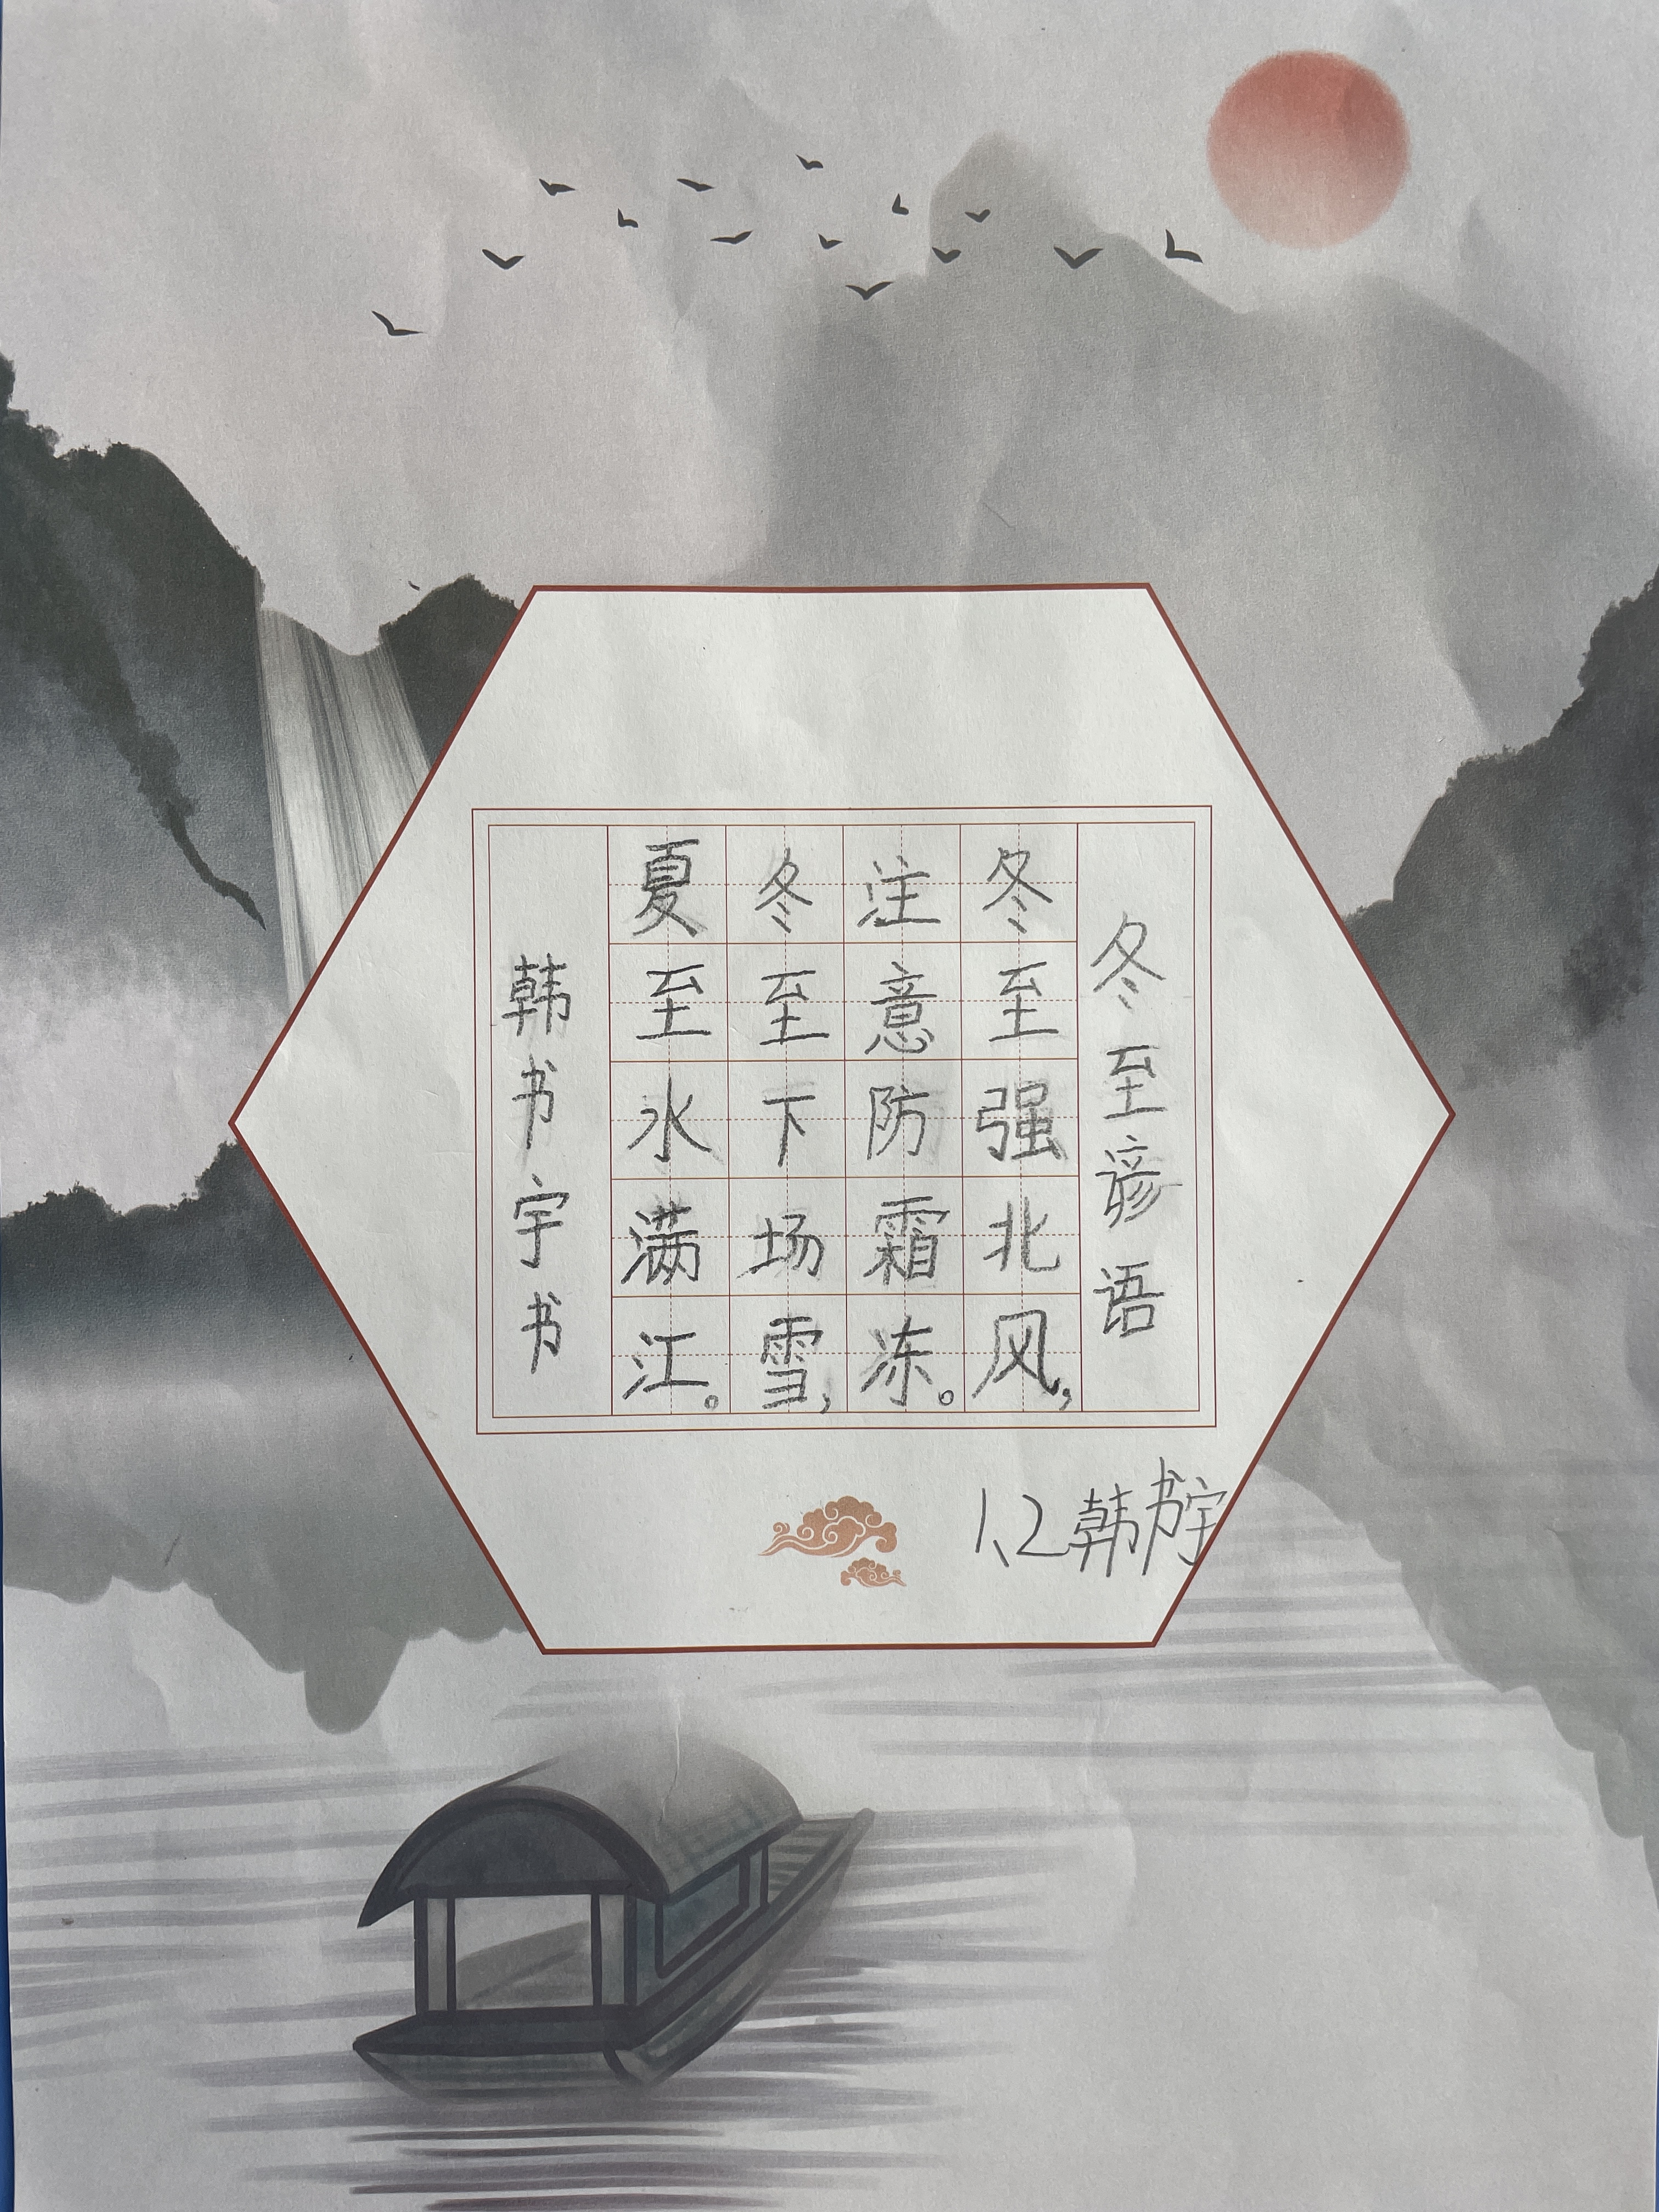 冬至谚语
冬至强北风,
注意防霜冻。
冬至下场雪,
夏至水满江。
韩书宇书
1、2韩书宇